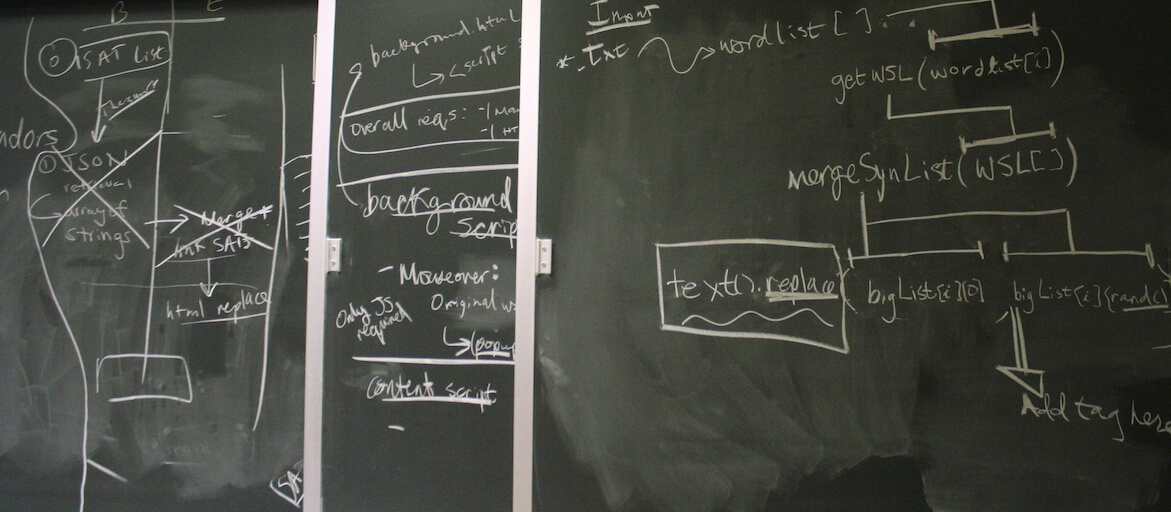 B E
① SAT List
Thesaurus
ndors
① JSON
retrieval
array of
strings
Merge +
link SATs
html replace
SA
background.html
<script
overall reqs: -1 Man
-1 HT
background
Scrip
- Mouseover:
Only JS
required
Original w
(popup
Content script
-
Input
*.txt wordlist [ ]
getWSL (wordlist[i])
mergeSynList (WSL[ ])
text().replace (bigList[i][0] bigList[i][rand(
Add tag here